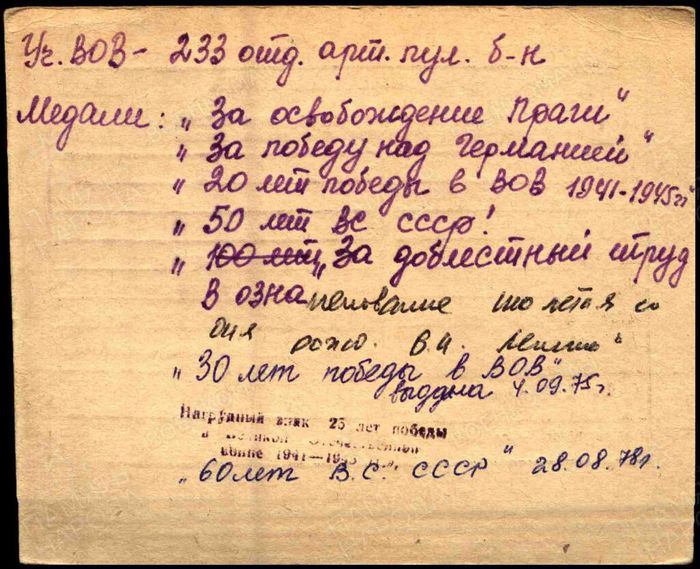 Уч. ВОВ - 233 отд. арт. пул. б-н
Медали: „За освобождение Праги"
„За победу над Германией"
„20 лет победы в ВОВ 1941-1945гг"
„50 лет ВС СССР!
„100 лет „За доблестный труд
В ознаменование столетия со
дня рожд. В.И. Ленина"
„30 лет победы в ВОВ"
выдана 4.09.75г.
Нагрудный знак 25 лет победы
в Великой Отечественной
войне 1941—1945 гг.
„60 лет В.С. СССР" 28.08.78г.